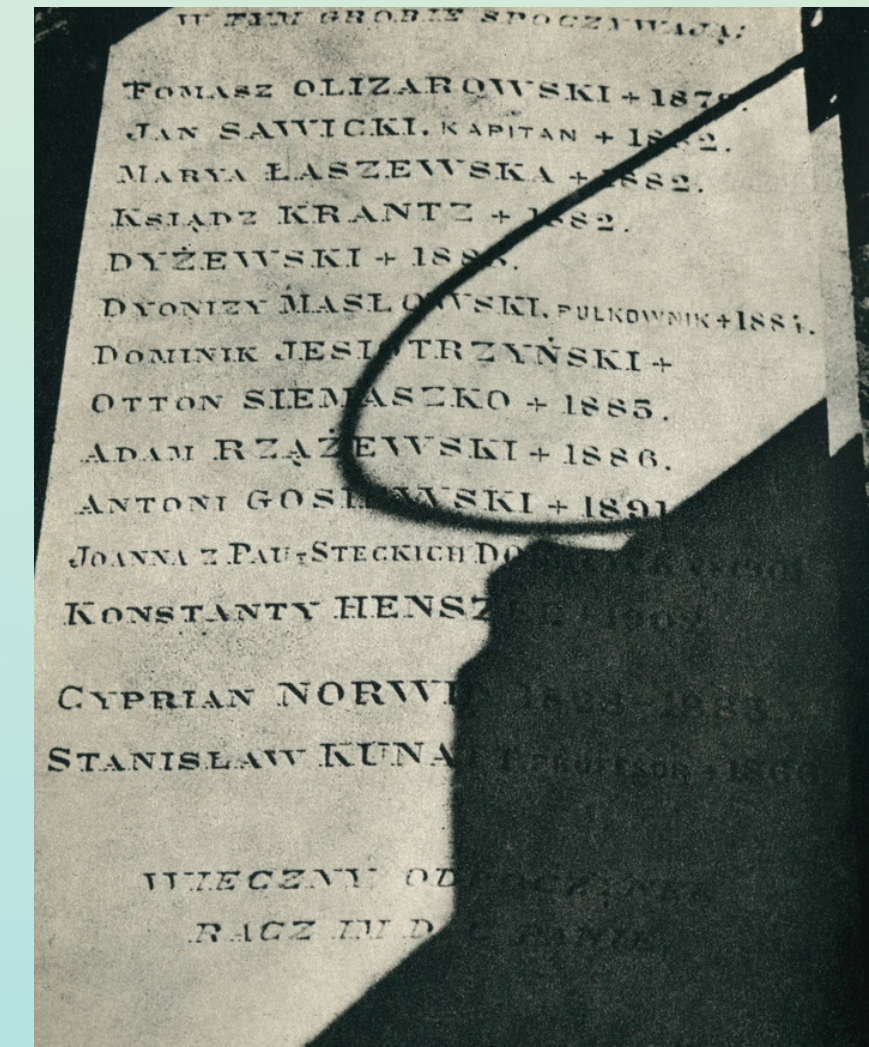 W TYM GROBIE SPOCZYWAJĄ:
TOMASZ OLIZAROWSKI + 1879.
JAN SAWICKI. KAPITAN + 1882.
MARYA ŁASZEWSKA + 1882.
KSIĄDZ KRANTZ + 1882.
DYŻEWSKI +
DYONIZY MASŁOWSKI. PUŁKOWNIK +
DOMINIK JESIOTRZYŃSKI +
OTTON SIEMASZKO + 1885.
ADAM RZĄŻEWSKI + 1886.
ANTONI GOSIEWSKI + 1891
JOANNA Z STECKICH
KONSTANTY HENSZEL + 1902
CYPRIAN NORWID 1883.
STANISŁAW KUNATT PROFESOR + 1866
WIECZNY ODPOCZYNEK
RACZ IM DAĆ PANIE